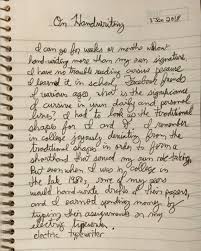 On Handwriting
I can go for weeks or months where
hand writing more than my own signature.
I have no trouble reading cursive because
I learned it in school. Facebook friends
of various ages, what is the significance
of cursive in your daily and personal
lives? I had to look up the traditional
shapes for I and I remember
in college joyously deviating from the
traditional shapes in order to form a
shorthand that served my own note taking,
But even when I was in college in
the late 1980s, some of my peers
would hand write drafts of their papers,
and I earned spending money by
typing their assignments on my
electric typewriter.
electric typewriter